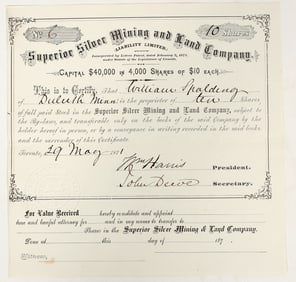 No 6 10 Shares
Superior Silver Mining and Land Company.
(LIABILITY LIMITED)
Incorporated by Letters Patent, dated February
under Statute of the Dominion of Canada.
CAPITAL $40,000 IN 4,000 SHARES OF $10 EACH.
This is to Certify, That William Spalding
of Duluth Minn is the proprietor of ten Shares
of full paid Stock in the Superior Silver Mining and Land Company, subject to
the By-laws, and transferable only on the books of the said Company by the
holder hereof in person, or by a conveyance in writing recorded in the said books
and the surrender of this Certificate.
Toronto, 29 May
Wm Harris President.
John Secretary.
For Value Received hereby constitute and appoint
true and lawful attorney for and in my name to transfer to
Shares in the Superior Silver Mining & Land Company.
Done at this day of 187 .
Witness,